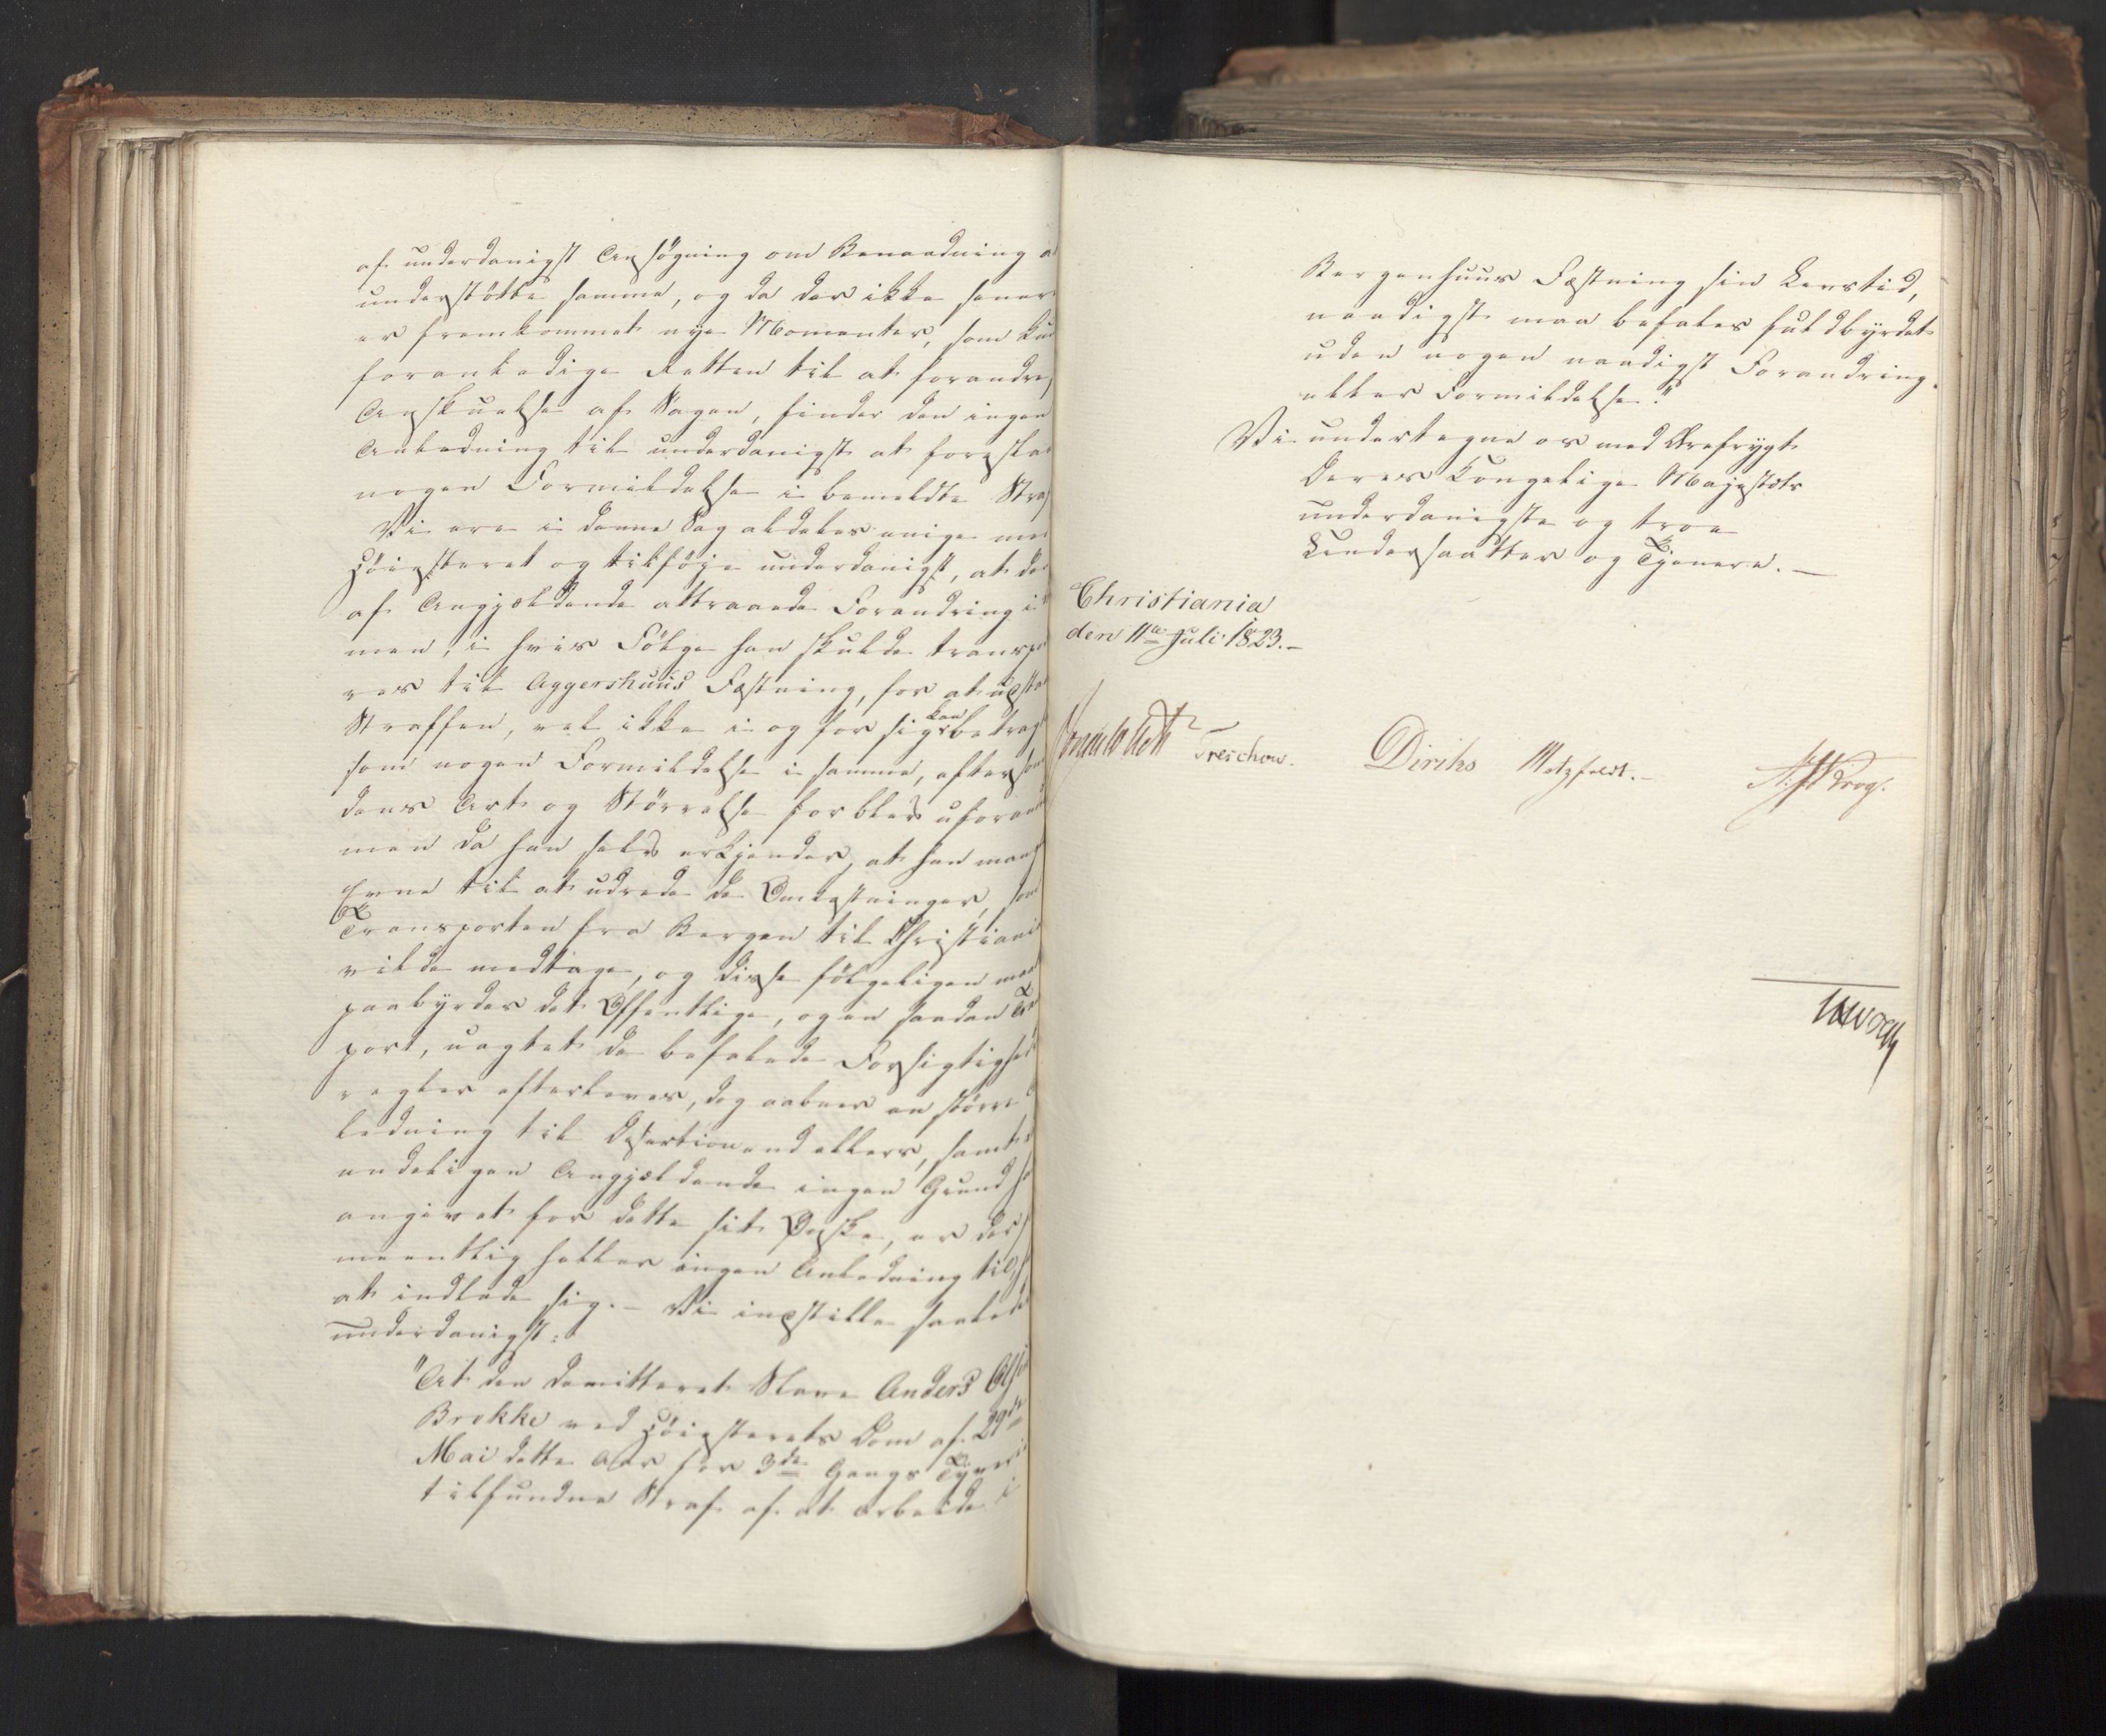 af underdanigst Ansögning om Benaadning a
understötte samme, og da der ikke sener
er fremkommet nye Momenter, som kun
foranledige Retten til at forandre
Anskuelse af Sagen, finder den ingen
Anledning til underdanigst at foreslaa
nogen Formildelse i bemeldte Straf
Vi ere i denne Sag aldeles enige med
Höiesteret og tilföie underdanigst, at den
af Angjældende attraaede Forandring i
men, i hvis Fölge han skulde transpor
res til Aggershuus Fæstning, for at udstaa
Straffen, vel ikke i og for sig kan betragt
som nogen Formildelse i samme, eftersom
dens Art og Störrelse forblev uforand
men da han selv erkjender, at han mang
Evne til at udrede de Omkostninger, som
Transporten fra Bergen til Christiani
vilde medtage, og disse fölgeligen maa
paabyrdes det Offentlige, og en saadan Tr
port, uagtet de befalede Forsigtigheds
regler efterleves, dog aabner en större
ledning til Desertion end ellers, samt
endeligen Angjældende ingen Grund ha
angivet for dette sit Önske, er der
meentlig heller ingen Anledning til
at indlade sig. – Vi indstille saaledes
underdanigst:
"At den demitterede Slave Anders Ols
Brekke ved Höiesterets Dom af 29de
Mai dette Aar for 3de Gangs Tyveri
tilfundne Straf af at arbeide i
Bergenhuus Fæstning sin Livstid,
naadigst maa befales fuldbyrdet
uden nogen naadigst Forandring
eller Formildelse."
Vi undertegne os med Ærefrygt
Deres Kongelige Majestæts
underdanigste og troe
Undersaatter og Tjenere. –
Christiania
den 11te Juli 1823. –
Sommerhielm
Treschow.
Diriks
Motzfeldt. –
Krog.